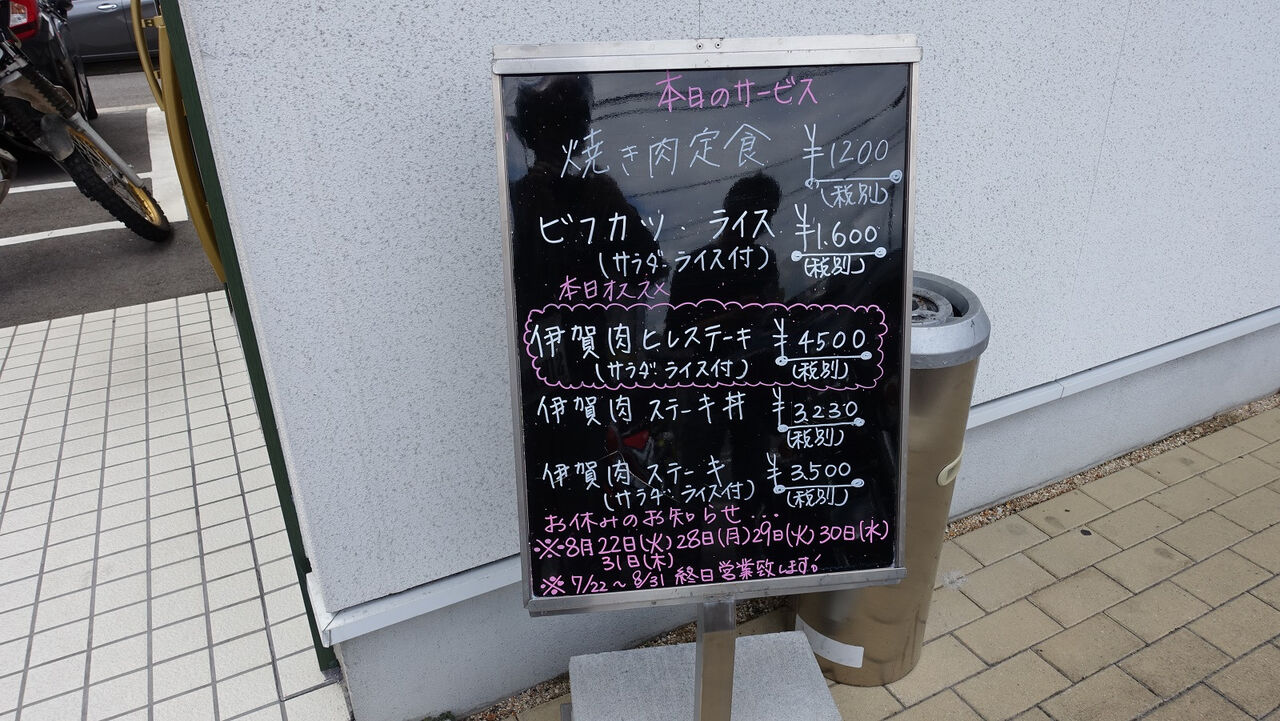 本日のサービス
焼き肉定食 ¥1200
(税別)
ビフカツ.ライス ¥1.600
(サラダ-ライス付) (税別)
本日オススメ
伊賀肉ヒレステーキ ¥4500
(サラダ.ライス付) (税別)
伊賀肉ステーキ丼 ¥3.230
(税別)
伊賀肉ステーキ ¥3.500
(サラダ.ライス付) (税別)
お休みのお知らせ...
※8月22日(火)28日(月)29日(火)30日(水)
31日(木)
※7/22~8/31 終日営業致します!